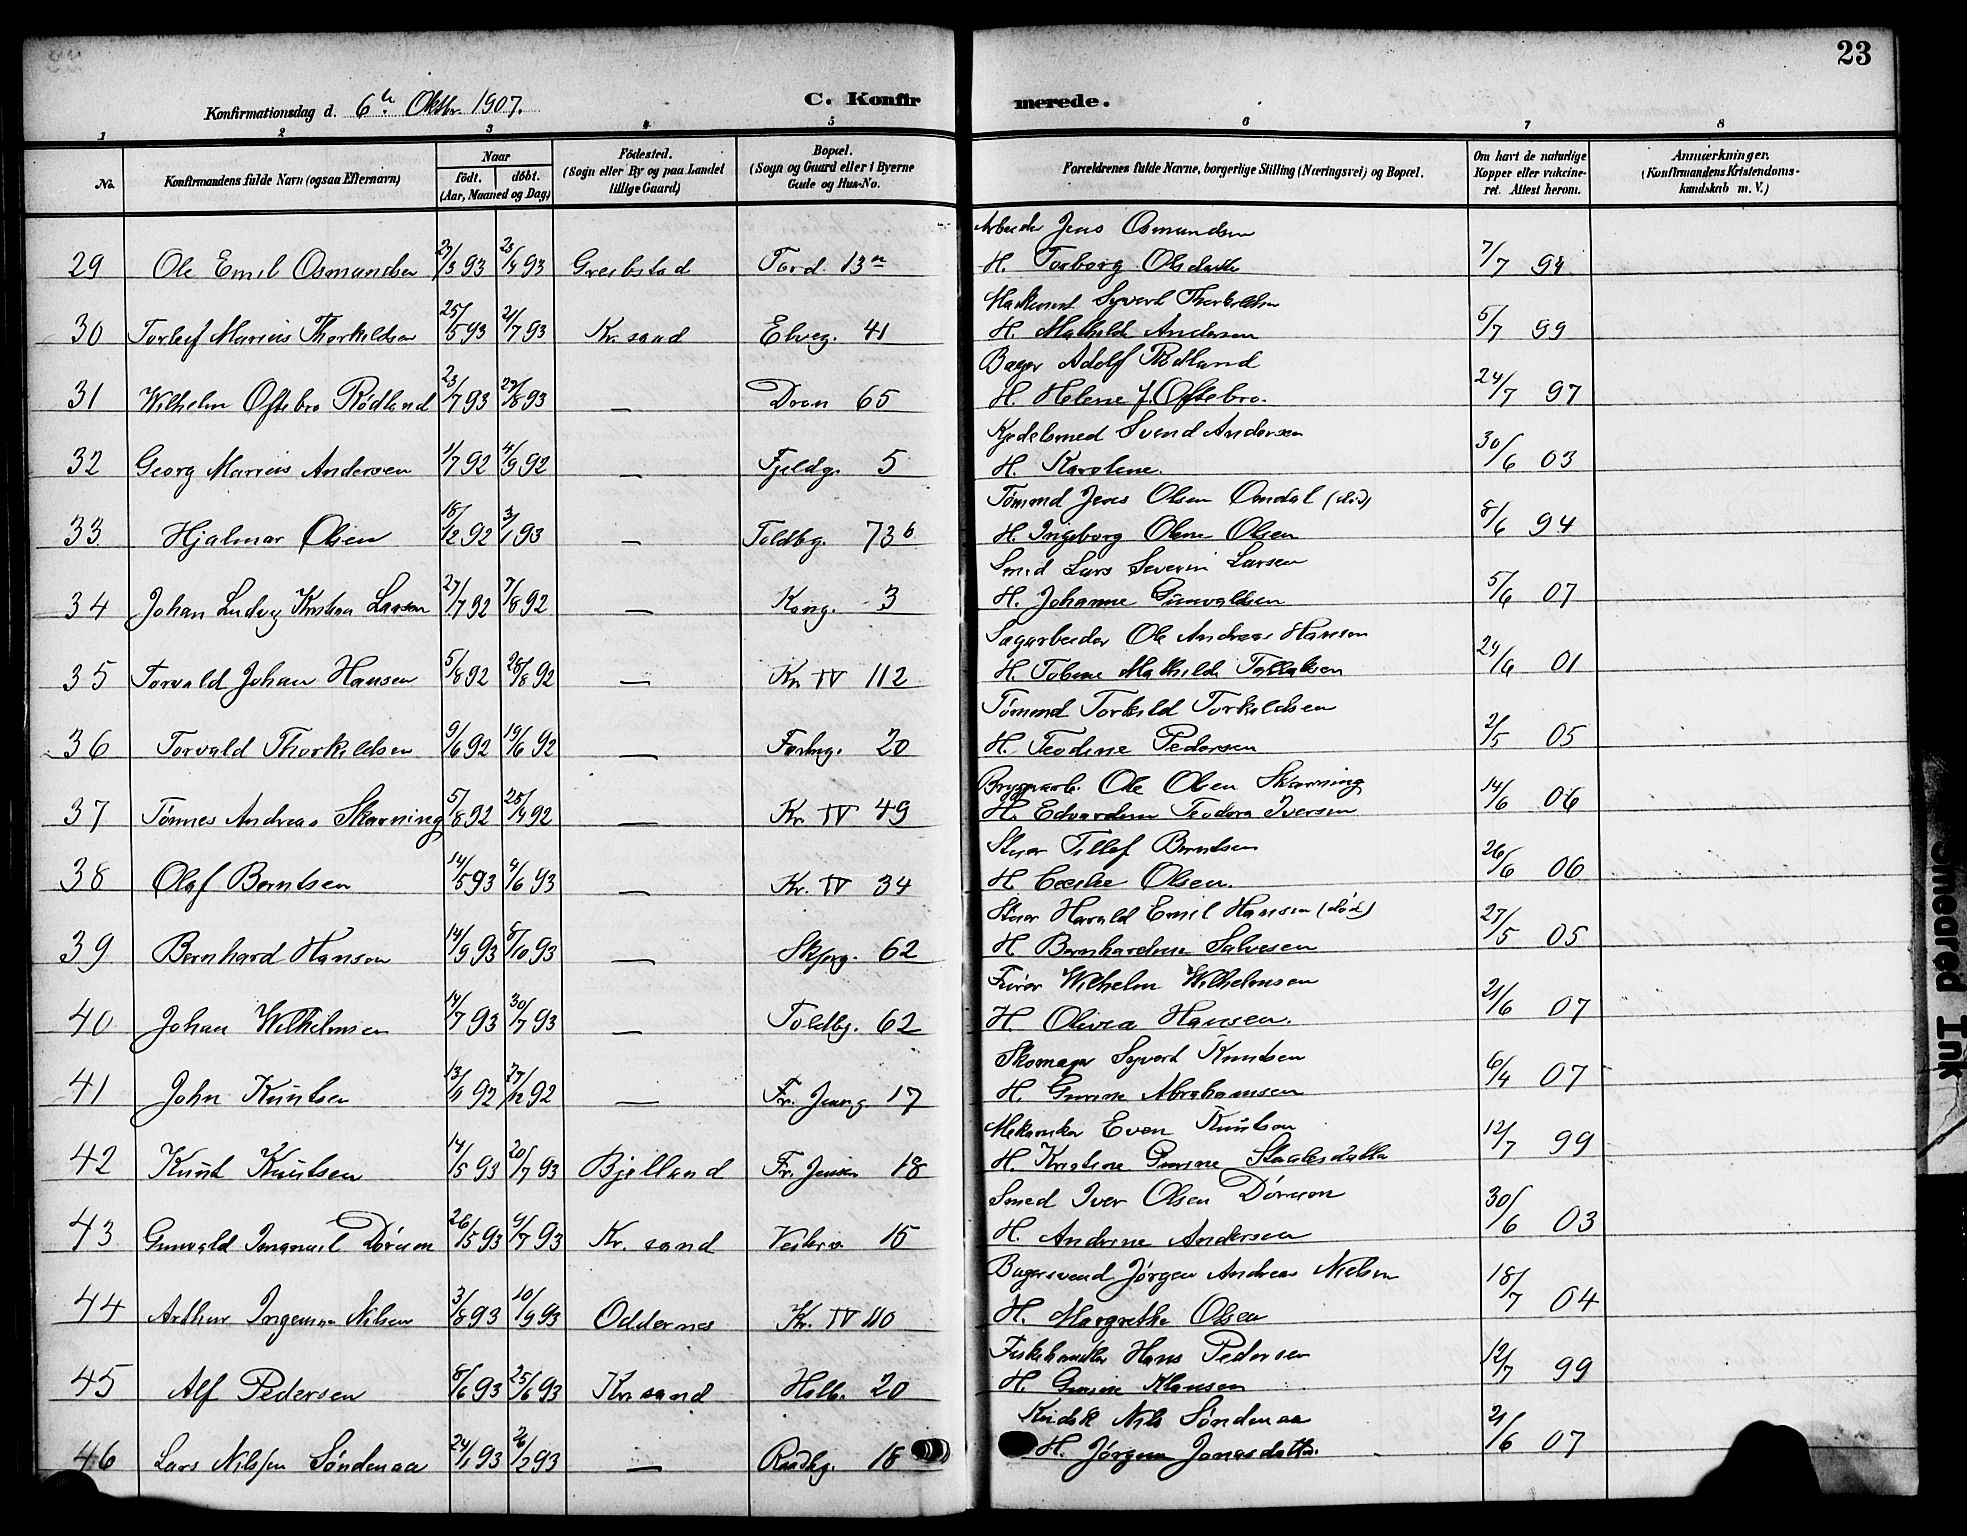 23
Konfirmationsdag d. 6te Oktbr. 1907.
C. Konfirmerede.
1 2 3 4 5 6 7 8
No.
Konfirmandens fulde Navn (ogsaa Efternavn)
Naar
født. døbt.
(Aar, Maaned og Dag)
Fødested.
(Sogn eller By og paa Landet
tillige Gaard)
Bopæl.
(Sogn og Gaard eller i Byerne
Gade og Hus-No.
Forældrenes fulde Navne, borgerlige Stilling (Næringsvei) og Bopæl.
Om havt de naturlige
Kopper eller vaksine-
ret. Attest herom.
Anmærkninger.
(Konfirmandens Kristendoms-
kundskab m. V.)
Arbeider Jens Osmundsen
29 Ole Emil Osmundsen 29/3 93 23/4 93 Greibstad Tord. 13 H. Torborg Olsdatter 7/7 94
Syvert Thorkildsen
30 Torleif Marius Thorkildsen 25/5 93 2/7 93 Kr. sand Elveg. 41 H. Mathilde Andersen 5/7 99
Bager Adolf Rødland
31 Wilhelm Oftebro Rødland 23/7 93 27/8 93 — Dron 65 H. Helene J. Oftebro. 24/7 97
Kjedelsmed Svend Andersen
32 Georg Marius Andersen 1/7 92 4/9 92 — Fjeldg. 5 H. Karoline. 30/6 03
Tømmd Jens Olsen Omdal (død)
33 Hjalmar Olsen 18/12 92 3/1 93 — Toldbg. 73b H. Ingeborg Olene Olsen 8/6 94
Smed Lars Severin Larsen
34 Johan Ludvig Kristian Larsen 27/7 92 7/8 92 — Kong. 3 H. Johanne Gunvaldsen 5/6 07
Sagarbeider Ole Andreas Hansen
35 Torvald Johan Hansen 5/8 92 28/8 92 — Kr. IV 112 H. Tobine Mathilde Tallaksen 24/6 01
Tømmd Torkild Torkildsen
36 Torvald Thorkildsen 9/6 92 19/6 92 — Festng. 20 H. Teodine Pedersen 2/5 05
Bryggearb. Ole Olsen Skarning
37 Tønnes Andreas Skarning 5/8 92 25/9 92 — Kr. IV 49 H. Edvardine Teodora Iversen 14/6 06
Stuer Tellef Berntsen
38 Olaf Berntsen 14/5 93 4/6 93 — Kr. IV 34 H. Olsen. 26/6 06
Stuer Harald Emil Hansen (død)
39 Bernhard Hansen 14/9 93 8/10 93 — Skyrg. 62 H Bernhardine Salvesen 27/5 05
Fyrer Wilhelm Wilhelmsen
40 Johan Wilhelmsen 14/7 93 30/7 93 — Toldbg. 62 H. Olivia Hansen. 21/6 07
Skomager Syvert Knudsen
41 John Knutsen 13/11 92 27/12 92 — Fr. Jensg. 17 H. Gunine Abrahamsen 6/4 07
Mekaniker Even Knutson
42 Knut Knutsen 14/5 93 20/7 93 Bjelland Fr. Jensen 18 H. Kristine Gurine Staalesdatter 12/7 99
Smed Iver Olsen Døreson
43 Gunvald Imanuel Døreson 26/5 93 9/7 93 Kr. sand Vesterv. 15 H. Andrine Andersen 30/6 03
Bagersvend Jørgen Andreas Nielsen
44 Arthur Ingeman Nilsen 3/8 93 10/9 93 Oddernes Kr. IV 110 H. Margrethe Olsen 18/7 04
Fiskehandler Hans Pedersen
45 Alf Pedersen 8/6 93 25/6 93 Kr. sand Holb. 20 H. Gunine Klausen 12/7 99
Kudsk Nils Søndenaa
46 Lars Nilssen Søndenaa 24/1 93 26/2 93 — Raadhg. 18 H. Jørgine Jonasdatter. 21/6 07
Smeared Ink